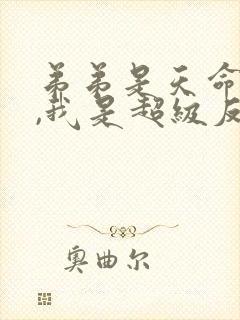 弟弟是天命
,我是超级反
奥曲尔